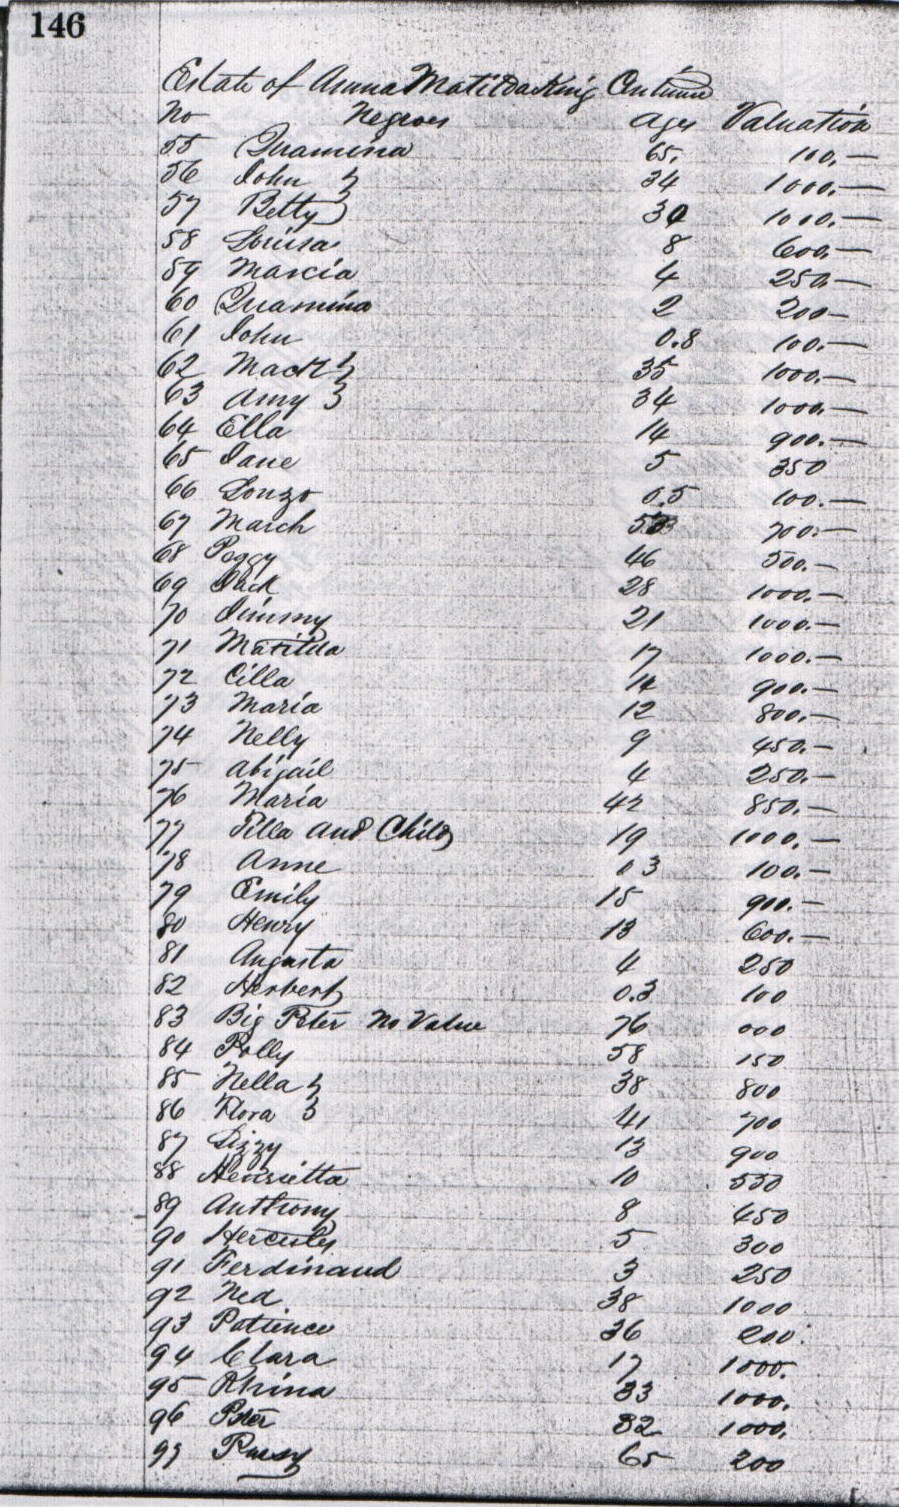 146
Estate of Anna Matilda King Continu
No Negroes Ages Valuation
55 Quamina 65. 100.—
56 John } 34 1000.—
57 Betty } 30 1000.—
58 Louisa 8 600.—
59 Marcia 4 250.—
60 Quamina 2 200—
61 John 0.8 100.—
62 Mack } 35 1000.—
63 Amy } 34 1000.—
64 Ella 14 900.—
65 Jane 5 350
66 Lonzo 0.5 100.—
67 March 700.—
68 Peggy 46 500.—
69 Jack 28 1000.—
70 Jimmy 21 1000.—
71 Matilda 17 1000.—
72 Cilla 14 900.—
73 Maria 12 800.—
74 Nelly 9 450.—
75 Abigail 4 250.—
76 Maria 42 850.—
77 and Child 19 1000.—
78 Anne 0 3 100.—
79 Emily 15 900.—
80 Henry 13 600.—
81 Augusta 4 250
82 Herbert 0.3 100
83 Big Peter No Value 76 000
84 Polly 58 150
85 Nella } 38 800
86 Flora } 41 700
87 Lizzy 13 900
88 Henrietta 10 550
89 Anthony 8 450
90 Hercules 5 300
91 Ferdinand 3 250
92 Ned 38 1000
93 Patience 36 200.
94 Clara 17 1000.
95 Rhina 33 1000.
96 Peter 32 1000.
97 65 200